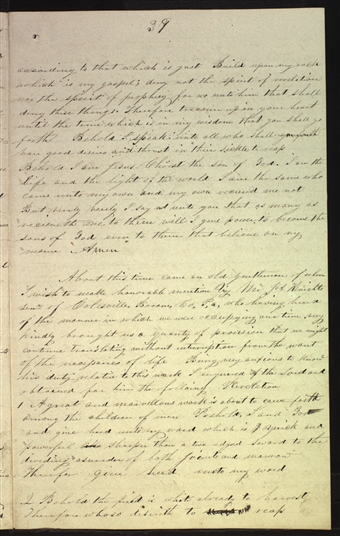 39
according to that which is just Build upon my rock
which is my gospel; deny not the spirit of revelation
nor the spirit of prophey, for wo unto him that shall
deny these things: Therefore treasure up in your heart
until the time which is in my wisdom that you shall go
forth Behold I speak unto all who shall
have good desires and thrust in their sickle to reap
Behold I am Jesus Christ the son of God. I am the
life and the light of the world I am the same who
came unto my own and my own received me not
But verily verily I say unto you that as many as
receiveth me, to them will I give power to become the
sons of God even to them that believe on my
name. Amen
About this time came an old gentleman of whom
I wish to make honorable mention by Mr Jh Knight
senr of Colsville Broom Co, Pa, who having heard
of the manner in which we were occupying our time very
kindly brought us a quantity of provision that we might
continue translating without interruption from the want
of the necessaries of life Being very anxious to know
his duty relative to this work I enquired of the Lord and
obtained for him the following Revelation
1 A great and marvellous work is about to come forth
among the children of men Behold, I am God
and give heed unto my word which is quick and
powerful sharper than a two edged sword to the
dividing asunder of both joints and marrow
Therefore give heed unto my word
2 Behold the field is white already to harvest
Therefore whoso desireth to reap